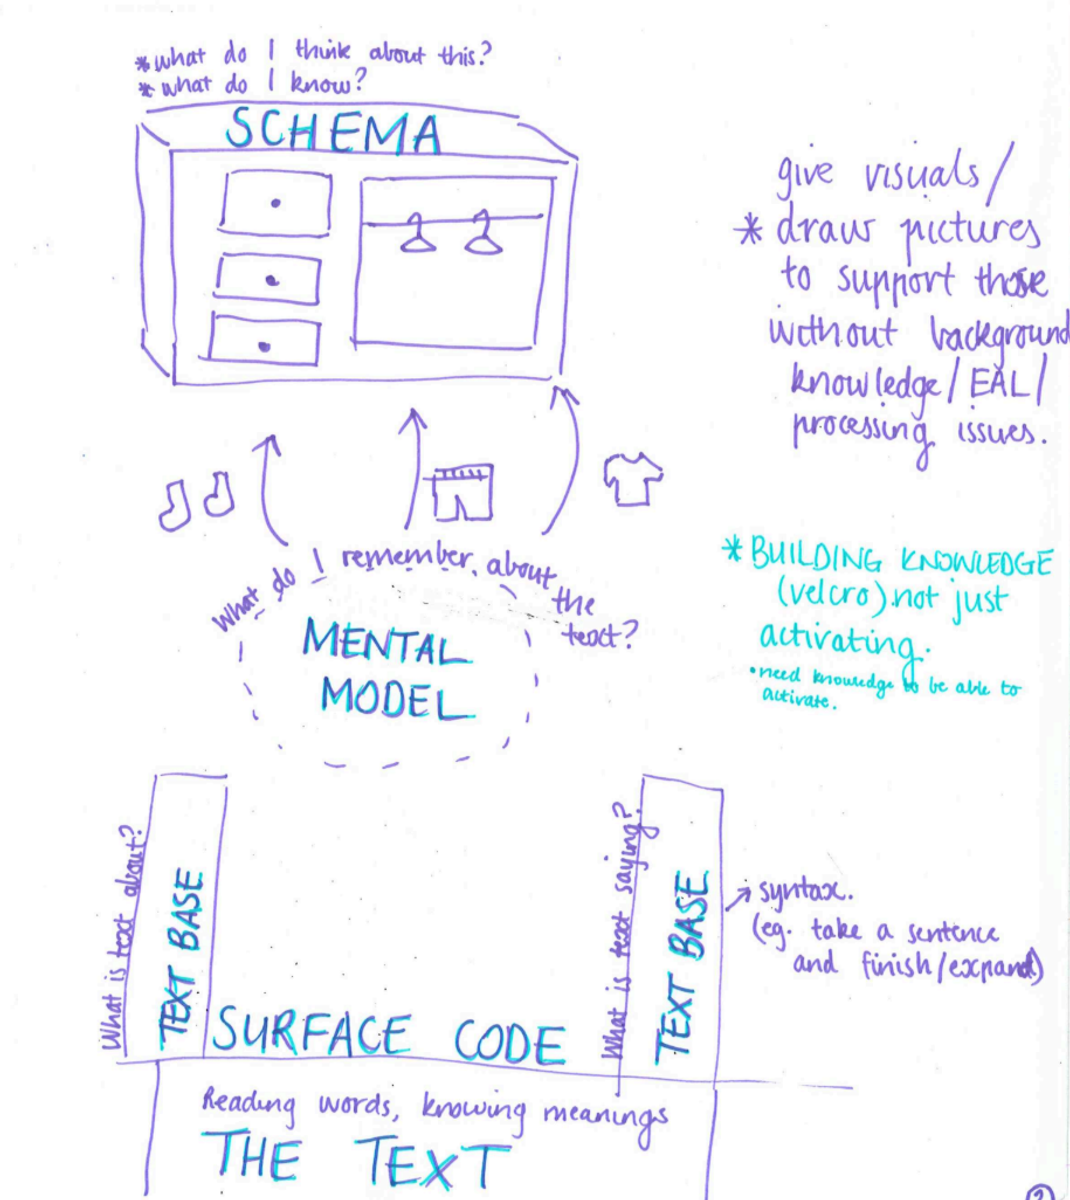 *what do I think about this?
*what do I know?
SCHEMA
give visuals/
* draw pictures
to support those
without background
knowledge/EAL/
processing issues.
What do I remember about the text?
MENTAL
MODEL
*BUILDING KNOWLEDGE
(velcro).not just
activating.
•need knowledge to be able to
activate.
What is text about?
TEXT BASE
What is text saying?
TEXT BASE
syntax.
(eg. take a sentence
and finish/expand)
SURFACE CODE
Reading words, knowing meanings
THE TEXT